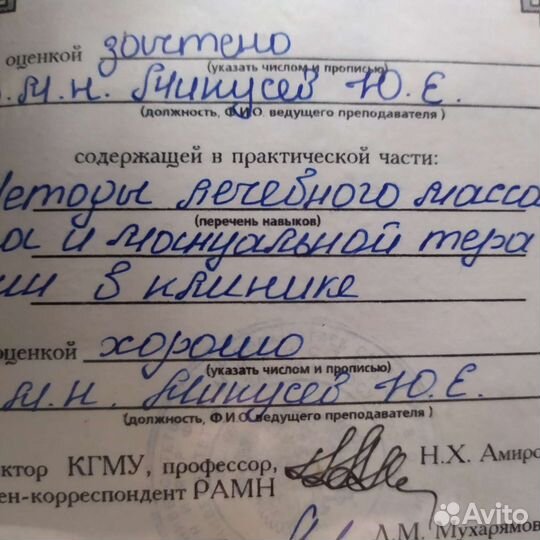 оценкой зачтено
(указать числом и прописью)
.м.н. Минусев Ю.Е.
(должность, Ф.И.О. ведущего преподавателя)
содержащей в практической части:
Методы лечебного масса
(перечень навыков)
а и мануальной тера
ии в клинике
оценкой хорошо
(указать числом и прописью)
.м.н. Минусев Ю.Е.
(должность, Ф.И.О. ведущего преподавателя)
ктор КГМУ, профессор,
ен-корреспондент РАМН
Н.Х. Амиро
Л.М. Мухарямов
Avito